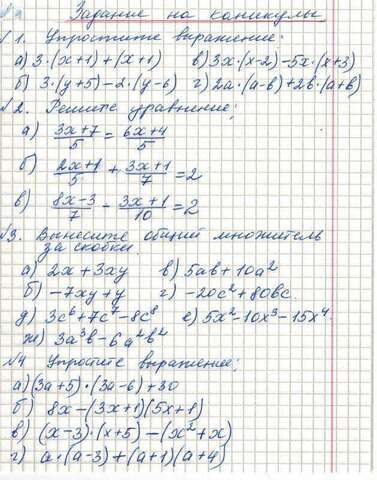 Задание на каникулы
№1. Упростите выражение:
а) 3·(x+1)+(x+1) в) 3x·(x-2)-5x·(x+3)
б) 3·(y+5)-2·(y-6) г) 2a·(a-b)+2b·(a+b)
№2. Решите уравнение:
а) (3x+7)/5 = (6x+4)/5
б) (2x+1)/5 + (3x+1)/7 = 2
в) (8x-3)/7 - (3x+1)/10 = 2
№3. Вынесите общий множитель
за скобки.
а) 2x+3xy в) 5ab+10a²
б) -7xy+y г) -20c²+80bc.
д) 3c⁶+7c⁷-8c⁸ е) 5x²-10x³-15x⁴.
ж) 3a³b-6a²b²
№4 Упростите выражение:
а) (3a+5)·(3a-6)+30
б) 8x-(3x+1)(5x+1)
в) (x-3)·(x+5)-(x²+x)
г) a·(a-3)+(a+1)(a+4)